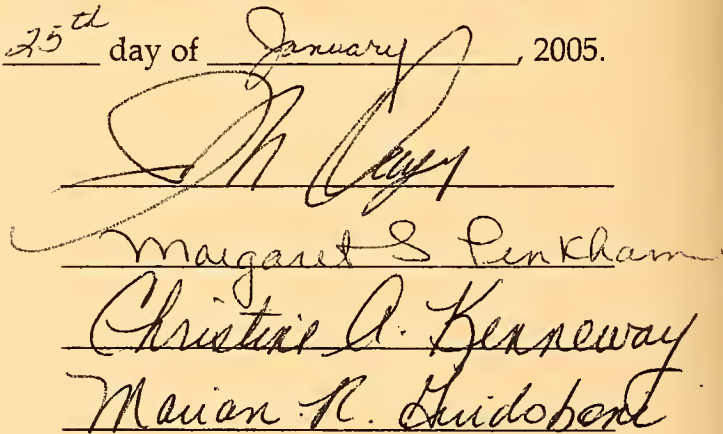 25th day of January, 2005.
Margaret S Penkham
Christine A. Kenneway
Marian R. Guidoboni